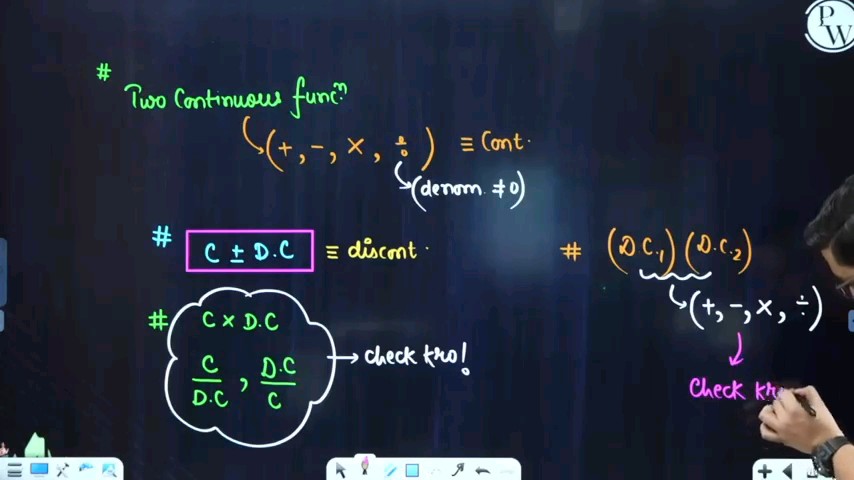 PW
# Two Continuous funcⁿ
(+, -, ×, ÷) ≡ Cont.
(denom. ≠ 0)
# C ± D.C ≡ discont.
# C × D.C
C/D.C , D.C/C → check kro!
# (D.C.₁) (D.C.₂)
(+, -, ×, ÷)
Check kr